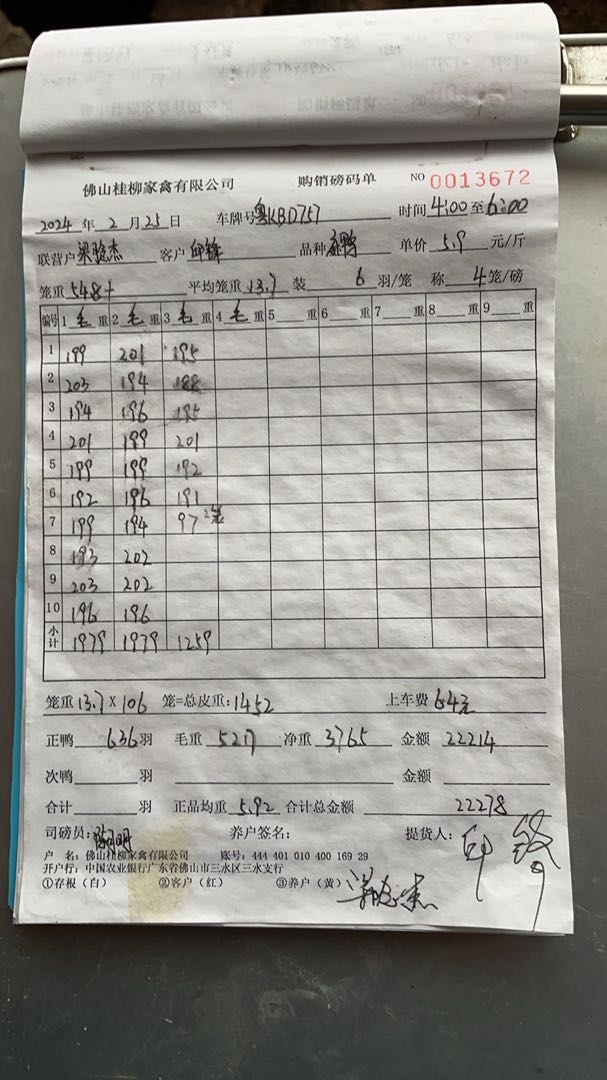 佛山桂柳家禽有限公司 购销磅码单 NO 0013672
2024 年 2 月 25 日 车牌号 粤KBD757 时间 4:00 至 6:00
联营户 梁骁杰 客户 邱锋 品种 麻鸭 单价 5.9 元/斤
笼重 548斤 平均笼重 13.7 装 6 羽/笼 称 4 笼/磅
编号 1 毛 重 2 毛 重 3 毛 重 4 毛 重 5 重 6 重 7 重 8 重 9 重
1 199 201 195
2 203 194 188
3 194 196 195
4 201 199 201
5 199 199 192
6 192 196 191
7 199 194 97 2笼
8 193 202
9 203 202
10 196 196
小计 1979 1979 1259
笼重 13.7 X 106 笼=总皮重: 1452 上车费 64元
正鸭 636 羽 毛重 5217 净重 3765 金额 22214
次鸭 羽 金额
合计 羽 正品均重 5.92 合计总金额 22278
司磅员: 养户签名: 提货人: 邱锋
户 名: 佛山桂柳家禽有限公司 账号: 444 401 010 400 169 29
开户行: 中国农业银行广东省佛山市三水区三水支行
①存根(白) ②客户(红) ③养户(黄)